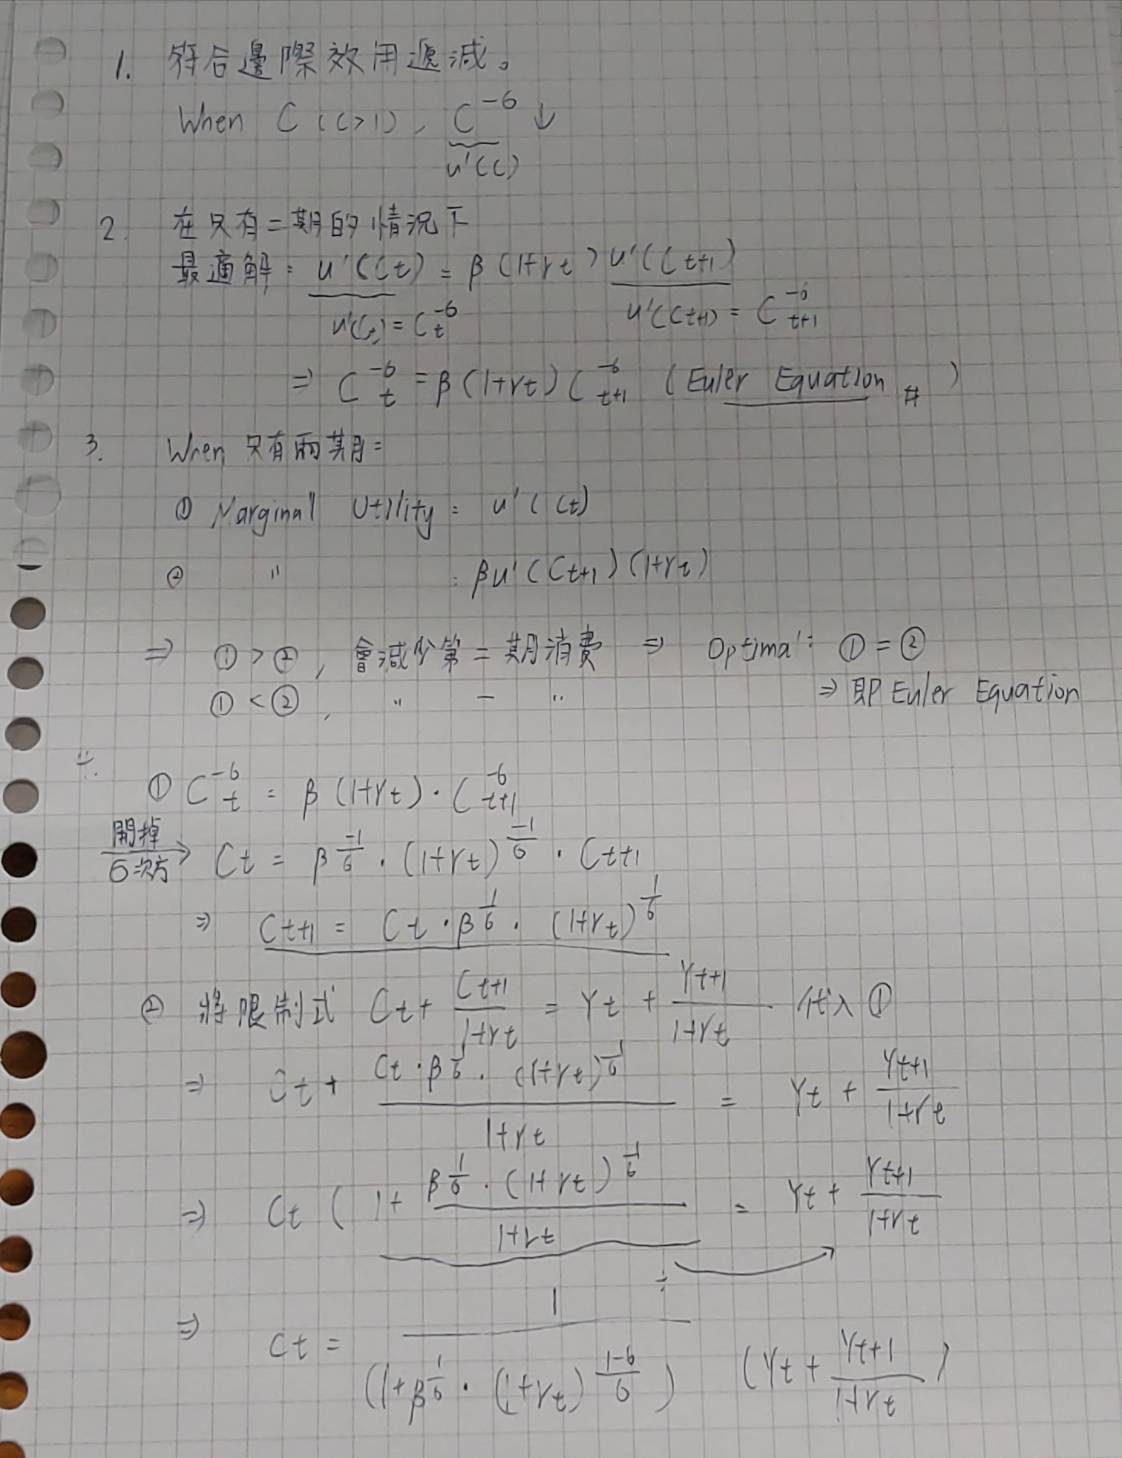 1. 符合邊際效用遞減。
When C (C>1), C^-6 ↓
u'(C)
2. 在只有二期的情況下
最適解: u'(Ct) = β(1+rt) u'(Ct+1)
u'(Ct) = Ct^-6 u'(Ct+1) = Ct+1^-6
⇒ Ct^-6 = β(1+rt) Ct+1^-6 (Euler Equation #)
3. When 只有兩期:
① Marginal Utility: u'(Ct)
② " : βu'(Ct+1)(1+rt)
⇒ ① > ②, 會減少第二期消費 ⇒ Optimal: ① = ②
① < ②, " 一 " ⇒ 即 Euler Equation
4.
① Ct^-6 = β(1+rt)·Ct+1^-6
開掉6次方→ Ct = β^(-1/6)·(1+rt)^(-1/6)·Ct+1
⇒ Ct+1 = Ct·β^(1/6)·(1+rt)^(1/6)
② 將限制式 Ct + Ct+1/(1+rt) = Yt + Yt+1/(1+rt) 代入 ①
⇒ Ct + (Ct·β^(1/6)·(1+rt)^(1/6))/(1+rt) = Yt + Yt+1/(1+rt)
⇒ Ct (1 + (β^(1/6)·(1+rt)^(1/6))/(1+rt) = Yt + Yt+1/(1+rt)
÷
⇒ Ct = 1/(1+β^(1/6)·(1+rt)^((1-6)/6)) (Yt + Yt+1/(1+rt))